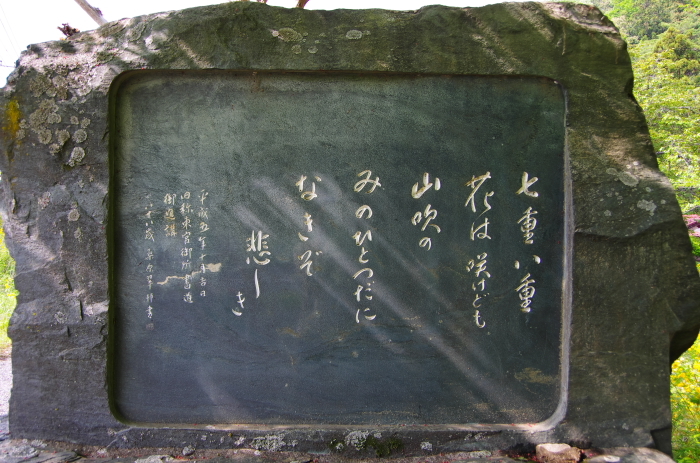 七重八重
花は咲けども
山吹の
みのひとつだに
なきぞ
悲しき
平成五年十月吉日
旧称東宮御所書道
御進講